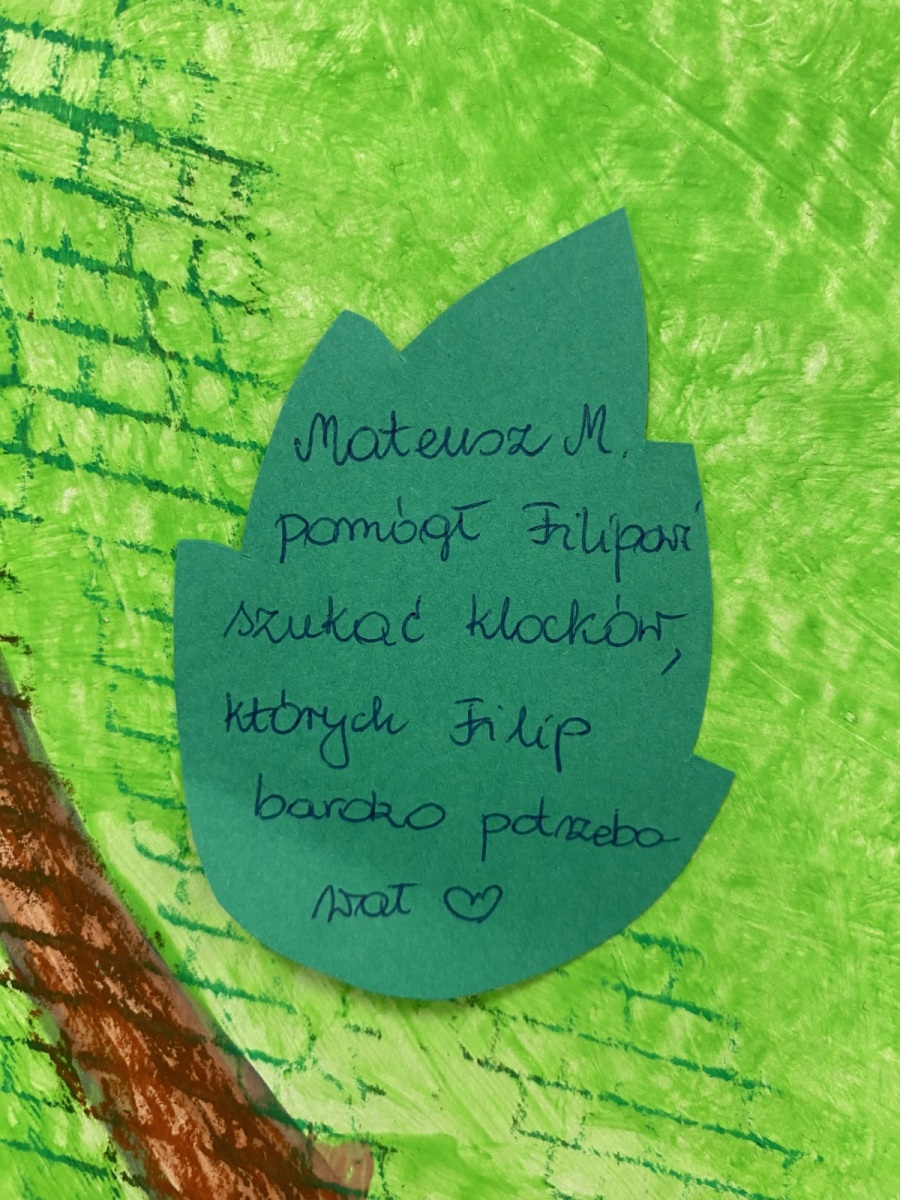 Mateusz M.
pomógł Filipowi
szukać klocków,
których Filip
bardzo potrzebo
wał ♡